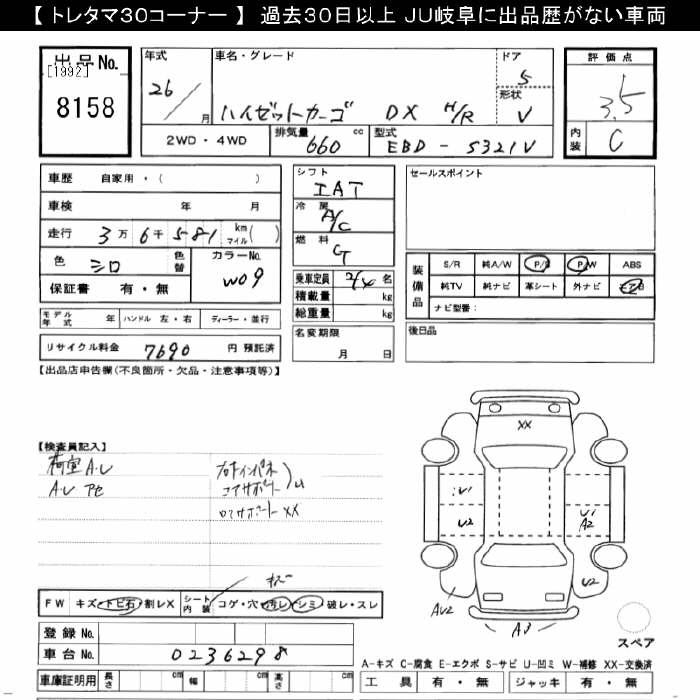 【 トレタマ30コーナー 】 過去30日以上 JU岐阜に出品歴がない車両
出品No.
[1992]
8158
年式
26/
月
車名・グレード
ハイゼットカーゴ DX H/R
ドア
5
形状
V
評価点
3.5
内装
C
2WD・4WD
排気量
660 cc
型式
EBD-S321V
車歴 自家用・( )
車検 年 月
走行 3万6千581 km マイル( )
色 シロ
色替
カラーNo.
W09
保証書 有・無
モデル年式 年
ハンドル 左・右
ディーラー・並行
リサイクル料金 7690 円 預託済
シフト
IAT
冷房
A/C
燃料
G
乗車定員 2/4 名
積載量 kg
総重量 kg
名変期限
月 日
セールスポイント
装備品
S/R 純A/W P/S P/W ABS
純TV 純ナビ 革シート 外ナビ エアB
ナビ型番:
後日品
【出品店申告欄(不良箇所・欠品・注意事項等)】
【検査員記入】
荷室 A.U
フロントインパネ
コアサポート
U
ロアサポート XX
XX
U1
U2
U1
A2
U2
AU2
A3
スペア
FW キズ・トビ石・割レX
シート内装
コゲ・穴・汚レ・シミ・破レ・スレ
キズ
登録No.
車台No. 0236298
車庫証明用
長さ cm 幅 cm 高さ cm
A-キズ C-腐食 E-エクボ S-サビ U-凹ミ W-補修 XX-交換済
工具 有・無 ジャッキ 有・無